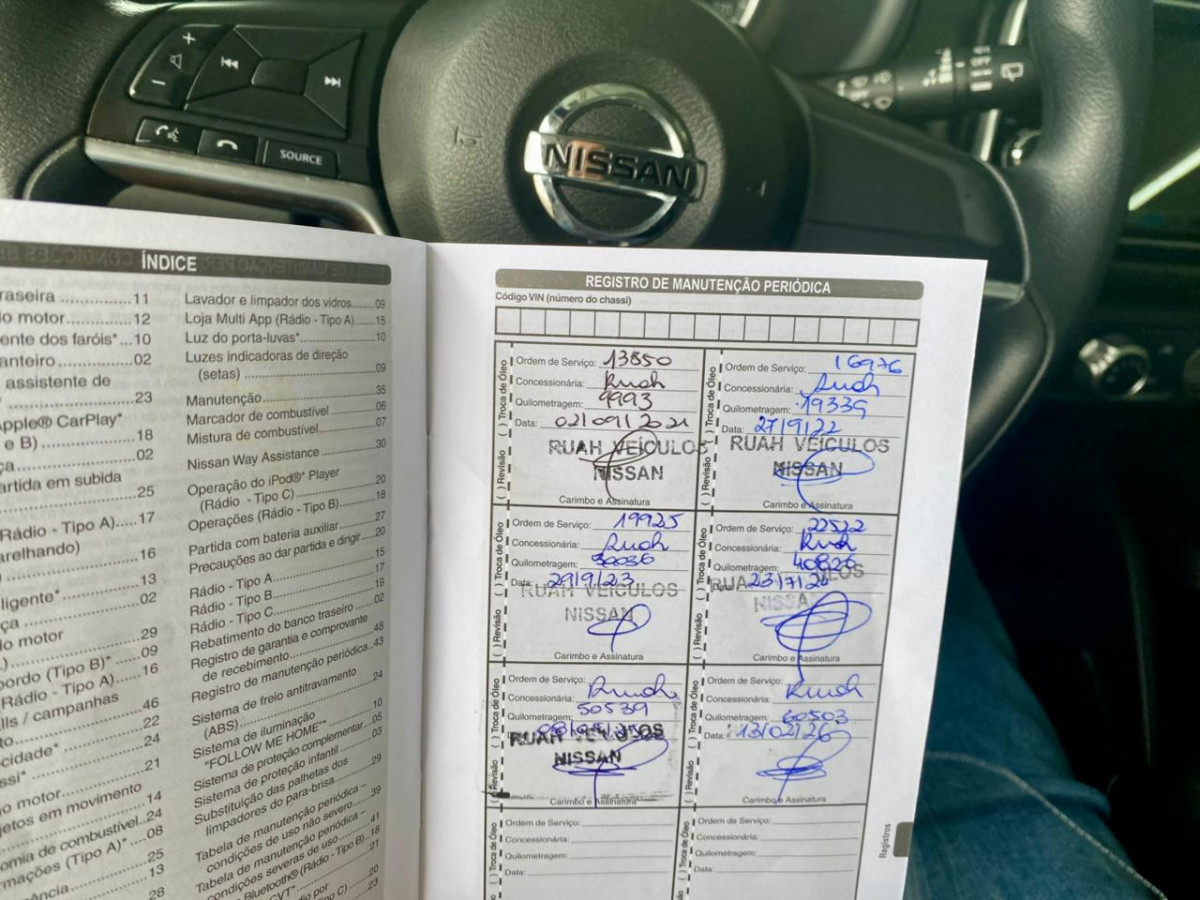 SOURCE
OFF
NISSAN
ÍNDICE
raseira ............11
o motor............12
ente dos faróis*...10
anteiro ............02
assistente de
............23
Apple® CarPlay*
e B) ............18
ça ............02
artida em subida
............25
Rádio - Tipo A).....17
arelhando)
............16
............13
ligente*
............02
ça
o motor
............29
ordo (Tipo B)* ......09
Rádio - Tipo A).....16
lls / campanhas
............46
............22
cidade*
............24
ssi*
............21
o motor
jetos em movimento
............14
omia de combustível..24
rmações (Tipo A)* ...08
............25
ência ............13
............28
Lavador e limpador dos vidros......09
Loja Multi App (Rádio - Tipo A)....15
Luz do porta-luvas* ............10
Luzes indicadoras de direção
(setas) ............09
Manutenção............35
Marcador de combustível............06
Mistura de combustível............07
Nissan Way Assistance ............30
Operação do iPod®* Player
(Rádio - Tipo C) ............20
Operações (Rádio - Tipo B) ......18
Partida com bateria auxiliar........27
Precauções ao dar partida e dirigir...20
Rádio - Tipo A ............15
Rádio - Tipo B ............17
Rádio - Tipo C ............19
Rebatimento do banco traseiro ......02
Registro de garantia e comprovante
de recebimento............48
Registro de manutenção periódica...43
Sistema de freio antitravamento
(ABS) ............24
Sistema de iluminação
"FOLLOW ME HOME"* ............10
Sistema de proteção complementar..05
Sistema de proteção infantil ......03
Substituição das palhetas dos
limpadores do para-brisa............29
Tabela de manutenção periódica -
condições de uso não severo........39
Tabela de manutenção periódica -
condições severas de uso............41
Bluetooth® (Rádio - Tipo B)....18
CVT* ............21
por ............20
Tipo C)......23
REGISTRO DE MANUTENÇÃO PERIÓDICA
Código VIN (número do chassi)
( ) Revisão ( ) Troca de Óleo
Ordem de Serviço: 13850
Concessionária: Ruah
Quilometragem: 9993
Data: 02/09/2021
RUAH VEÍCULOS
NISSAN
Carimbo e Assinatura
( ) Revisão ( ) Troca de Óleo
Ordem de Serviço: 16976
Concessionária: Ruah
Quilometragem: 19339
Data: 27/9/22
RUAH VEÍCULOS
NISSAN
Carimbo e Assinatura
( ) Revisão ( ) Troca de Óleo
Ordem de Serviço: 19925
Concessionária: Ruah
Quilometragem: 30036
Data: 29/9/23
RUAH VEÍCULOS
NISSAN
Carimbo e Assinatura
( ) Revisão ( ) Troca de Óleo
Ordem de Serviço: 22522
Concessionária: Ruah
Quilometragem: 40826
Data: 23/7/24
RUAH VEÍCULOS
NISSAN
Carimbo e Assinatura
( ) Revisão ( ) Troca de Óleo
Ordem de Serviço:
Concessionária: Ruah
Quilometragem: 50539
RUAH VEÍCULOS
NISSAN
Carimbo e Assinatura
( ) Revisão ( ) Troca de Óleo
Ordem de Serviço:
Concessionária: Ruah
Quilometragem: 60503
Data: 13/02/26
Carimbo e Assinatura
( ) Troca de Óleo
Ordem de Serviço:
Concessionária:
Quilometragem:
Data:
( ) Troca de Óleo
Ordem de Serviço:
Concessionária:
Quilometragem:
Data:
Registros